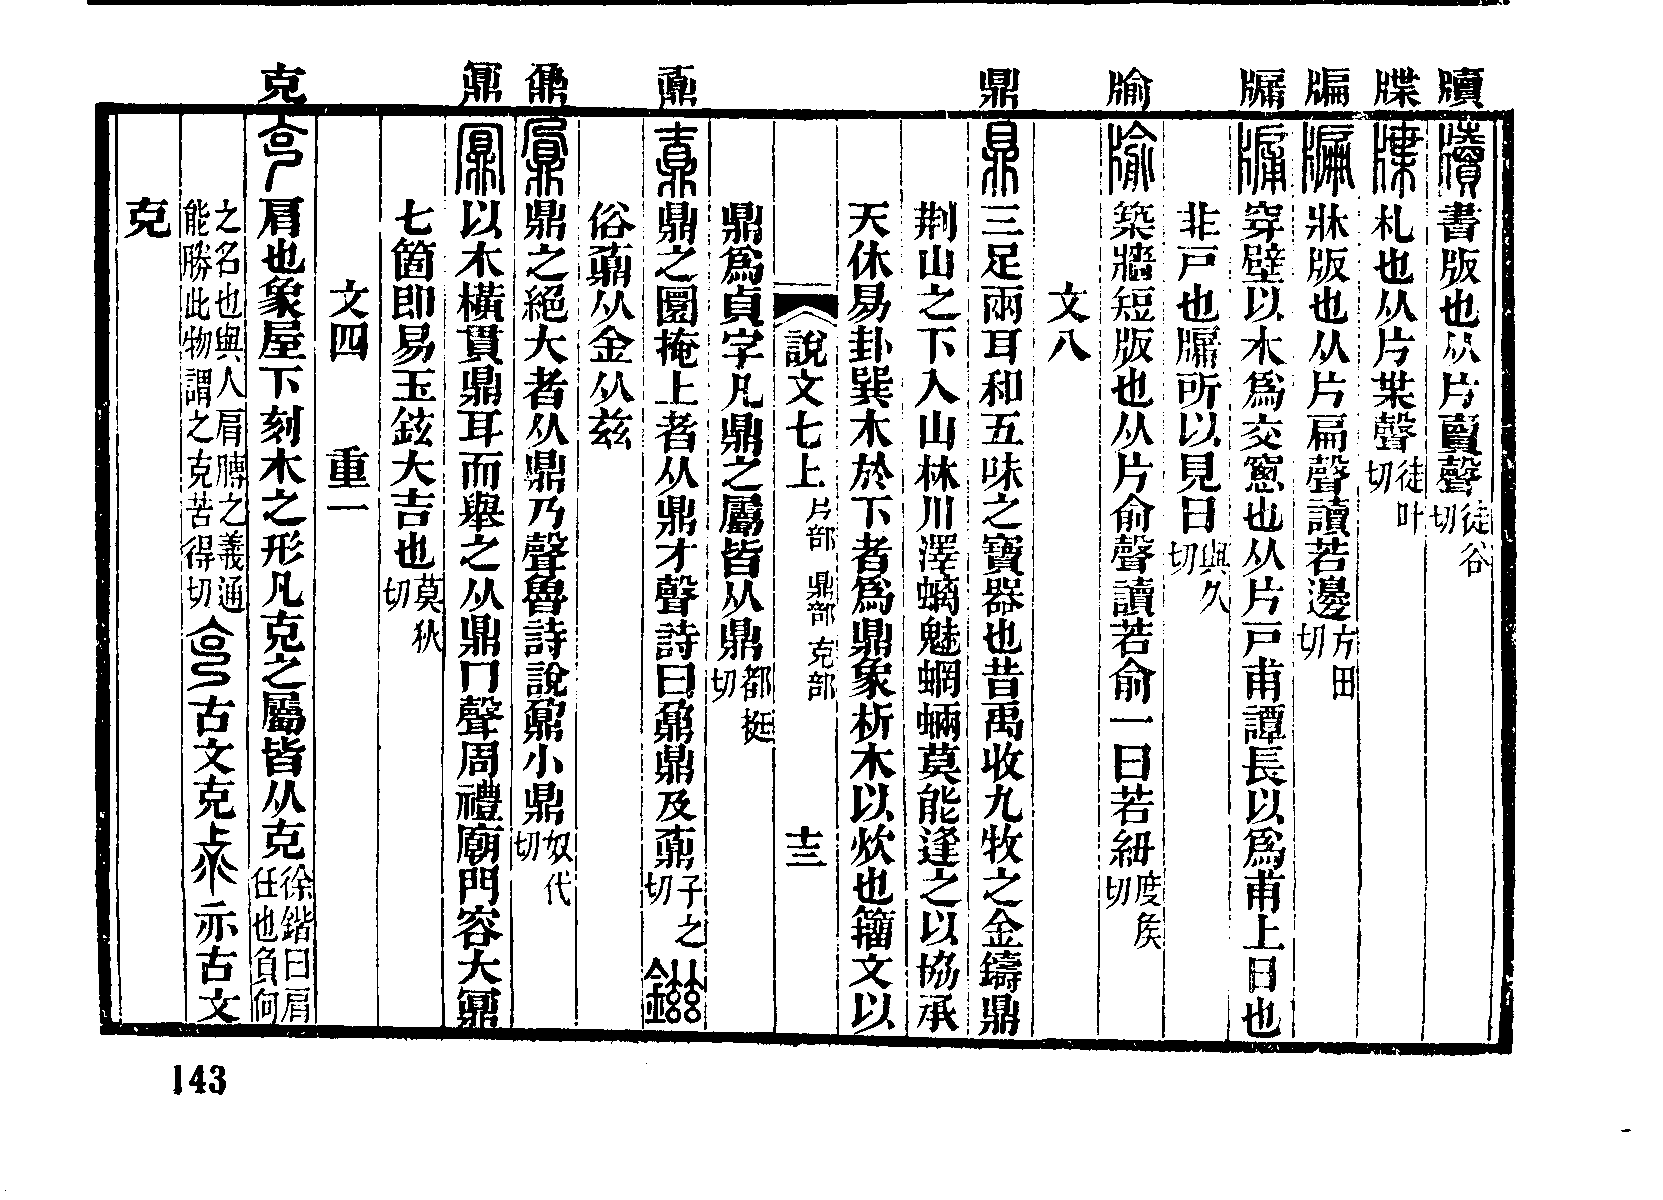 牘 牘 書版也从片𧶠聲徒谷切
牒 牒 札也从片枼聲徒叶切
牑 牑 牀版也从片扁聲讀若邊方田切
牖 牖 穿壁以木爲交窻也从片戶甫譚長以爲甫上日也
非戶也牖所以見日與久切
牏 牏 築牆短版也从片俞聲讀若俞一曰若紐度矦切
文八
鼎 鼎 三足兩耳和五味之寶器也昔禹收九牧之金鑄鼎
荆山之下入山林川澤螭魅蝄蜽莫能逢之以協承
天休易卦巽木於下者爲鼎象析木以炊也籒文以
說文七上 片部 鼎部 克部 十三
鼎爲貞字凡鼎之屬皆从鼎都挺切
鼒 鼒 鼎之圜掩上者从鼎才聲詩曰鼐鼎及鼒子之切 鎡
俗鼒从金从兹
鼐 鼐 鼎之絕大者从鼎乃聲魯詩說鼐小鼎奴代切
鼏 鼏 以木橫貫鼎耳而舉之从鼎冂聲周禮廟門容大鼏
七箇即易玉鉉大吉也莫狄切
文四 重一
克 克 肩也象屋下刻木之形凡克之屬皆从克徐鍇曰肩任也負何
之名也與人肩膊之義通能勝此物謂之克苦得切 古文克 亦古文
克
143